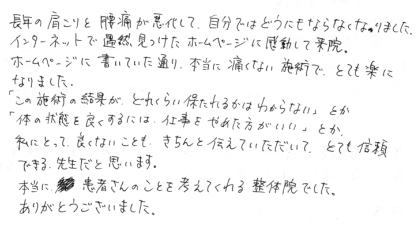 長年の肩こりと腰痛が悪化して、自分ではどうにもならなくなりました。
インターネットで偶然見つけたホームページに感動して来院。
ホームページに書いていた通り、本当に痛くない施術で、とても楽に
なりました。
「この施術の結果が、どれくらい保たれるかはわからない」とか
「体の状態を良くするには、仕事をやめた方がいい」とか
私にとって、良くないことも、きちんと伝えていただいて、とても信頼
できる先生だと思います。
本当に患者さんのことを考えてくれる整体院でした。
ありがとうございました。